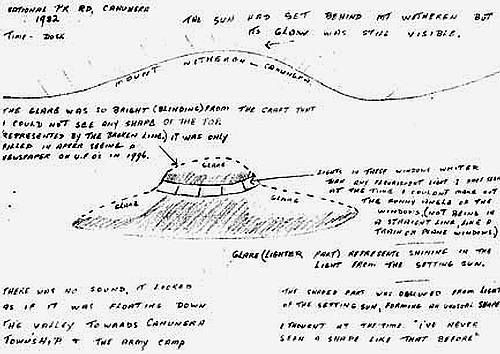 NATIONAL PK RD, CANUNGRA
1982
TIME - DUSK
THE SUN HAD SET BEHIND MT WETHEREN BUT
ITS GLOW WAS STILL VISIBLE.
MOUNT WETHERON - CANUNGRA.
THE GLARE WAS SO BRIGHT (BLINDING) FROM THE CRAFT THAT
I COULD NOT SEE ANY SHAPE OF THE TOP
(REPRESENTED BY THE BROKEN LINE.) IT WAS ONLY
FILLED IN AFTER SEEING A
NEWSPAPER ON U.F.O'S IN 1996.
GLARE
GLARE
GLARE
LIGHTS IN THESE WINDOWS WHITER
THAN ANY FLUORESCENT LIGHT I HAVE SEEN
AT THE TIME I COULDN'T MAKE OUT
THE FUNNY ANGLE OF THE
WINDOWS. (NOT BEING IN
A STRAIGHT LINE, LIKE A
TRAIN OR PLANE WINDOWS.)
GLARE (LIGHTER PART) REPRESENTS SHINING IN THE
LIGHT FROM THE SETTING SUN.
THERE WAS NO SOUND, IT LOOKED
AS IF IT WAS FLOATING DOWN
THE VALLEY TOWARDS CANUNGRA
TOWNSHIP & THE ARMY CAMP
THE SHADED PART WAS OBSCURED FROM LIGHT
OF THE SETTING SUN, FORMING AN UNUSUAL SHAPE
I THOUGHT AT THE TIME "I'VE NEVER
SEEN A SHAPE LIKE THAT BEFORE"